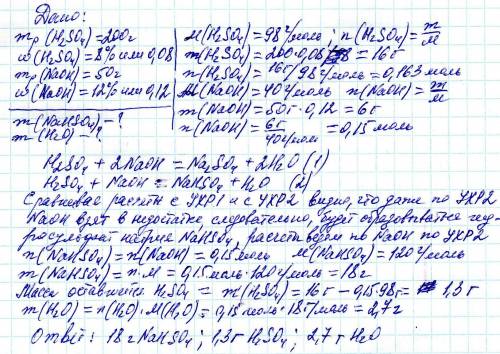 Дано:
m р (H₂SO₄) = 200г
w(H₂SO₄) = 8% или 0,08
m р (NaOH) = 50г
w(NaOH) = 12% или 0,12
m(NaHSO₄) - ?
m(H₂O) - ?
M(H₂SO₄) = 98 г/моль; n(H₂SO₄) = m/M
m(H₂SO₄) = 200·0,08 = 16г
n(H₂SO₄) = 16г/98г/моль = 0,163 моль
M(NaOH) = 40 г/моль n(NaOH) = m/M
m(NaOH) = 50г·0,12 = 6г
n(NaOH) = 6г/40г/моль = 0,15 моль
H₂SO₄ + 2NaOH = Na₂SO₄ + 2H₂O (1)
H₂SO₄ + NaOH = NaHSO₄ + H₂O (2)
Сравнивая расчеты с УХР1 и с УХР2 видно, что даже по УХР2
NaOH взят в недостатке, следовательно, будет образовываться гид-
росульфат натрия NaHSO₄, расчет ведем по NaOH по УХР2
n(NaHSO₄) = n(NaOH) = 0,15 моль M(NaHSO₄) = 120 г/моль
m(NaHSO₄) = n·M = 0,15 моль·120 г/моль = 18г
Масса оставшейся H₂SO₄ = m(H₂SO₄) = 16г - 0,15·98г = 1,3г
m(H₂O) = n(H₂O)·M(H₂O) = 0,15 моль·18г/моль = 2,7г
Ответ: 18г NaHSO₄; 1,3г H₂SO₄; 2,7г H₂O